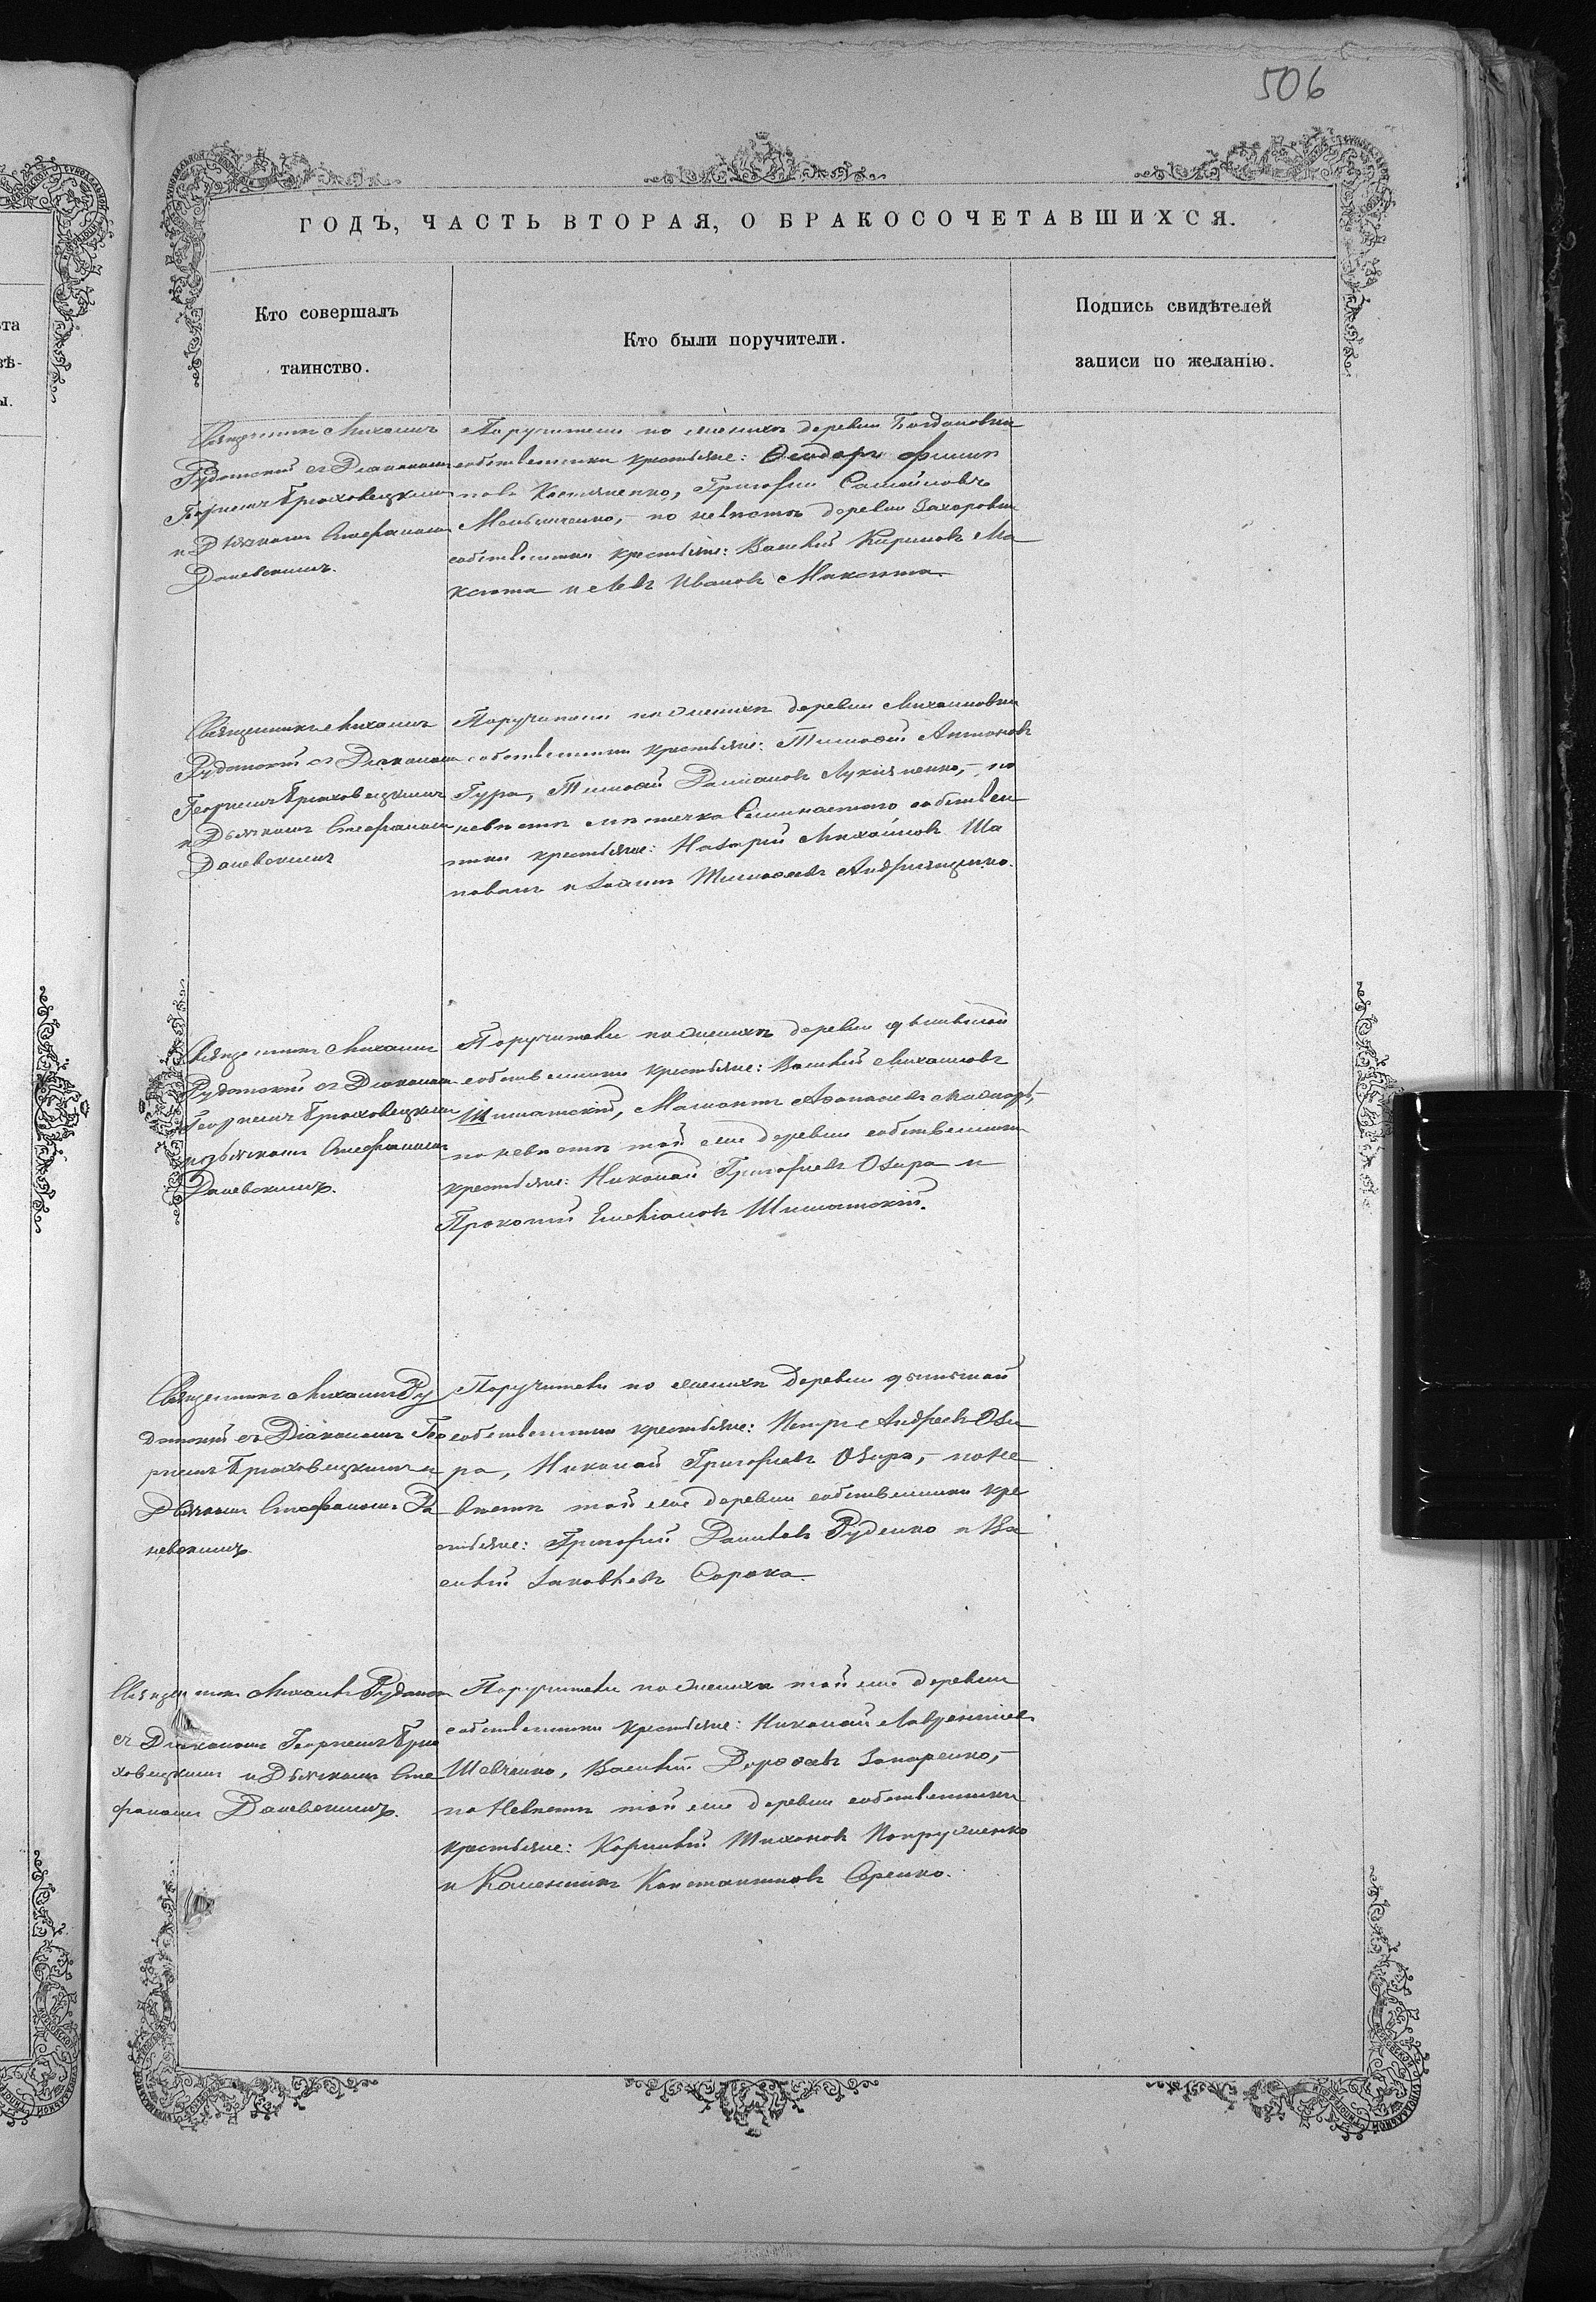 506
ГОДЪ, ЧАСТЬ ВТОРАЯ, О БРАКОСОЧЕТАВШИХСЯ.
Кто совершалъ
таинство.
Кто были поручители.
Подпись свидѣтелей
записи по желанію.
Священникъ Михаилъ
Рудинскій съ Діакономъ
Георгіемъ Брюховецкимъ
и Дьячкомъ Стефаномъ
Даневскимъ.
Поручители по женихѣ деревни Богдановки
собственники крестьяне: Ѳеодоръ Филип
повъ Костиненко, Григорій Самойловъ
по невѣстѣ деревни Захаровки
собственники крестьяне: Василій Кириловъ Ма
ксюта и Левъ Ивановъ Максюта
Священникъ Михаилъ
съ Діакономъ
Георгіемъ Брюховецкимъ
и Дьячкомъ Стефаномъ
Даневскимъ
Поручители по женихѣ деревни Михайловки
собственники крестьяне: Тимоѳій Антоновъ
Гура, Тимоѳій Даміановъ Лукьяненко, – по
невѣстѣ мѣстечка собствен
ники крестьяне: Назарій Михайловъ Ша
повалъ и Іоаннъ Тимоѳеевъ Андрющенко.
Священникъ Михаилъ
съ Діакономъ
Георгіемъ Брюховецкимъ
и Дьячкомъ Стефаномъ
Даневскимъ.
Поручители по женихѣ деревни
собственники крестьяне: Василій Михаиловъ
Шишатскій, Аѳанасіевъ
по невѣстѣ той же деревни собственники
крестьяне: Николай Григоріевъ Озира и
Прокопій Шишатскій.
Священникъ Михаилъ Ру
съ Діакономъ Гео
ргіемъ Брюховецкимъ и
Дьячкомъ Стефаномъ Да
невскимъ.
Поручители по женихѣ деревни
собственники крестьяне: Петръ Андреевъ Ози
ра, Николай Григорьевъ Озира, – по не
вѣстѣ той же деревни собственники кре
стьяне: Григорій Даниловъ Руденко и Ва
силій Іаковлевъ Сорока.
Священникъ Михаилъ
съ Діакономъ Георгіемъ Брю
ховецкимъ и Дьячкомъ Сте
фаномъ Даневскимъ.
Поручители по женихѣ той же деревни
собственники крестьяне: Николай Лаврентіевъ
Шевченко, Василій Дороѳеевъ
по невѣстѣ той же деревни собственники
крестьяне: Корнилій Тихоновъ
и Константиновъ